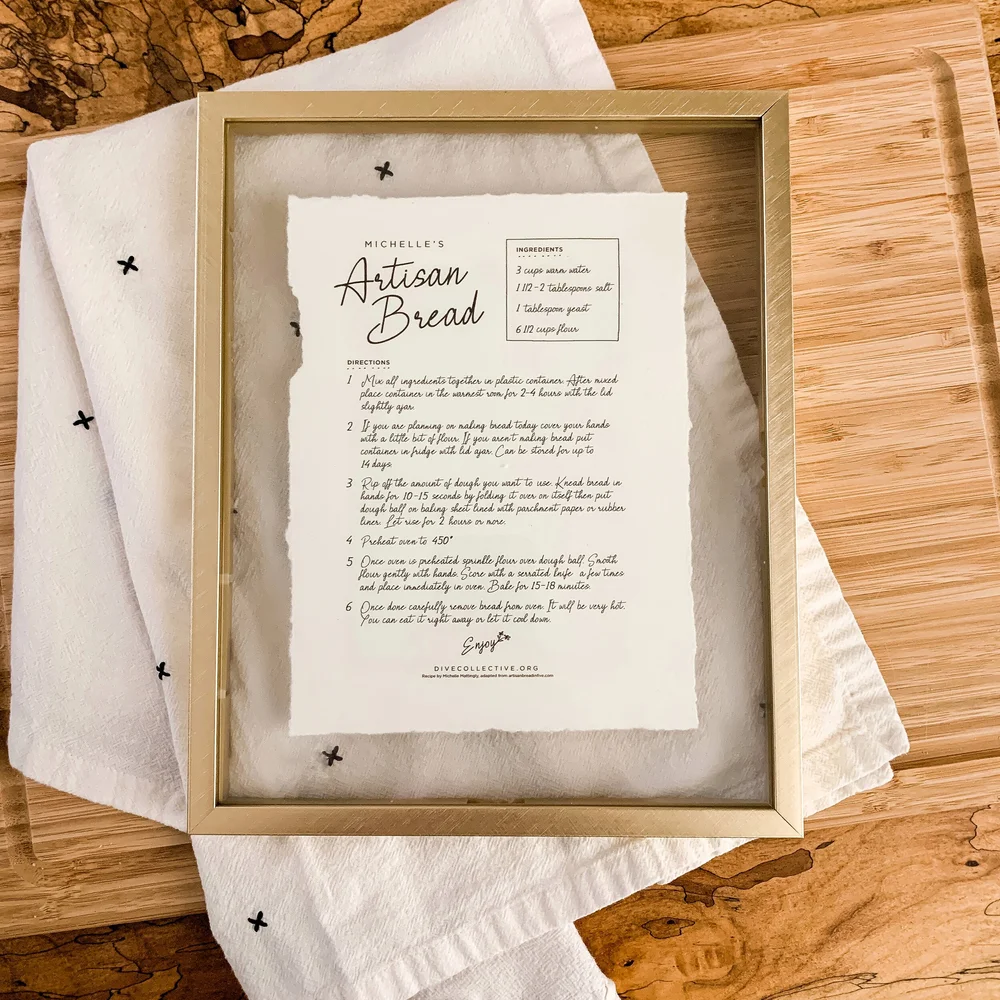 MICHELLE'S
Artisan
Bread
INGREDIENTS
3 cups warm water
1 1/2 - 2 tablespoons salt
1 tablespoon yeast
6 1/2 cups flour
DIRECTIONS
1 Mix all ingredients together in plastic container. After mixed
place container in the warmest room for 2-4 hours with the lid
slightly ajar.
2 If you are planning on making bread today cover your hands
with a little bit of flour. If you aren't making bread put
container in fridge with lid ajar. Can be stored for up to
14 days.
3 Rip off the amount of dough you want to use. Knead bread in
hands for 10-15 seconds by folding it over on itself then put
dough ball on baking sheet lined with parchment paper or rubber
liner. Let rise for 2 hours or more.
4 Preheat oven to 450°
5 Once oven is preheated sprinkle flour over dough ball. Smooth
flour gently with hands. Score with a serrated knife a few times
and place immediately in oven. Bake for 15-18 minutes.
6 Once done carefully remove bread from oven. It will be very hot.
You can eat it right away or let it cool down.
Enjoy
DIVECOLLECTIVE.ORG
Recipe by Michelle Mattingly adapted from artisanbreadinfive.com